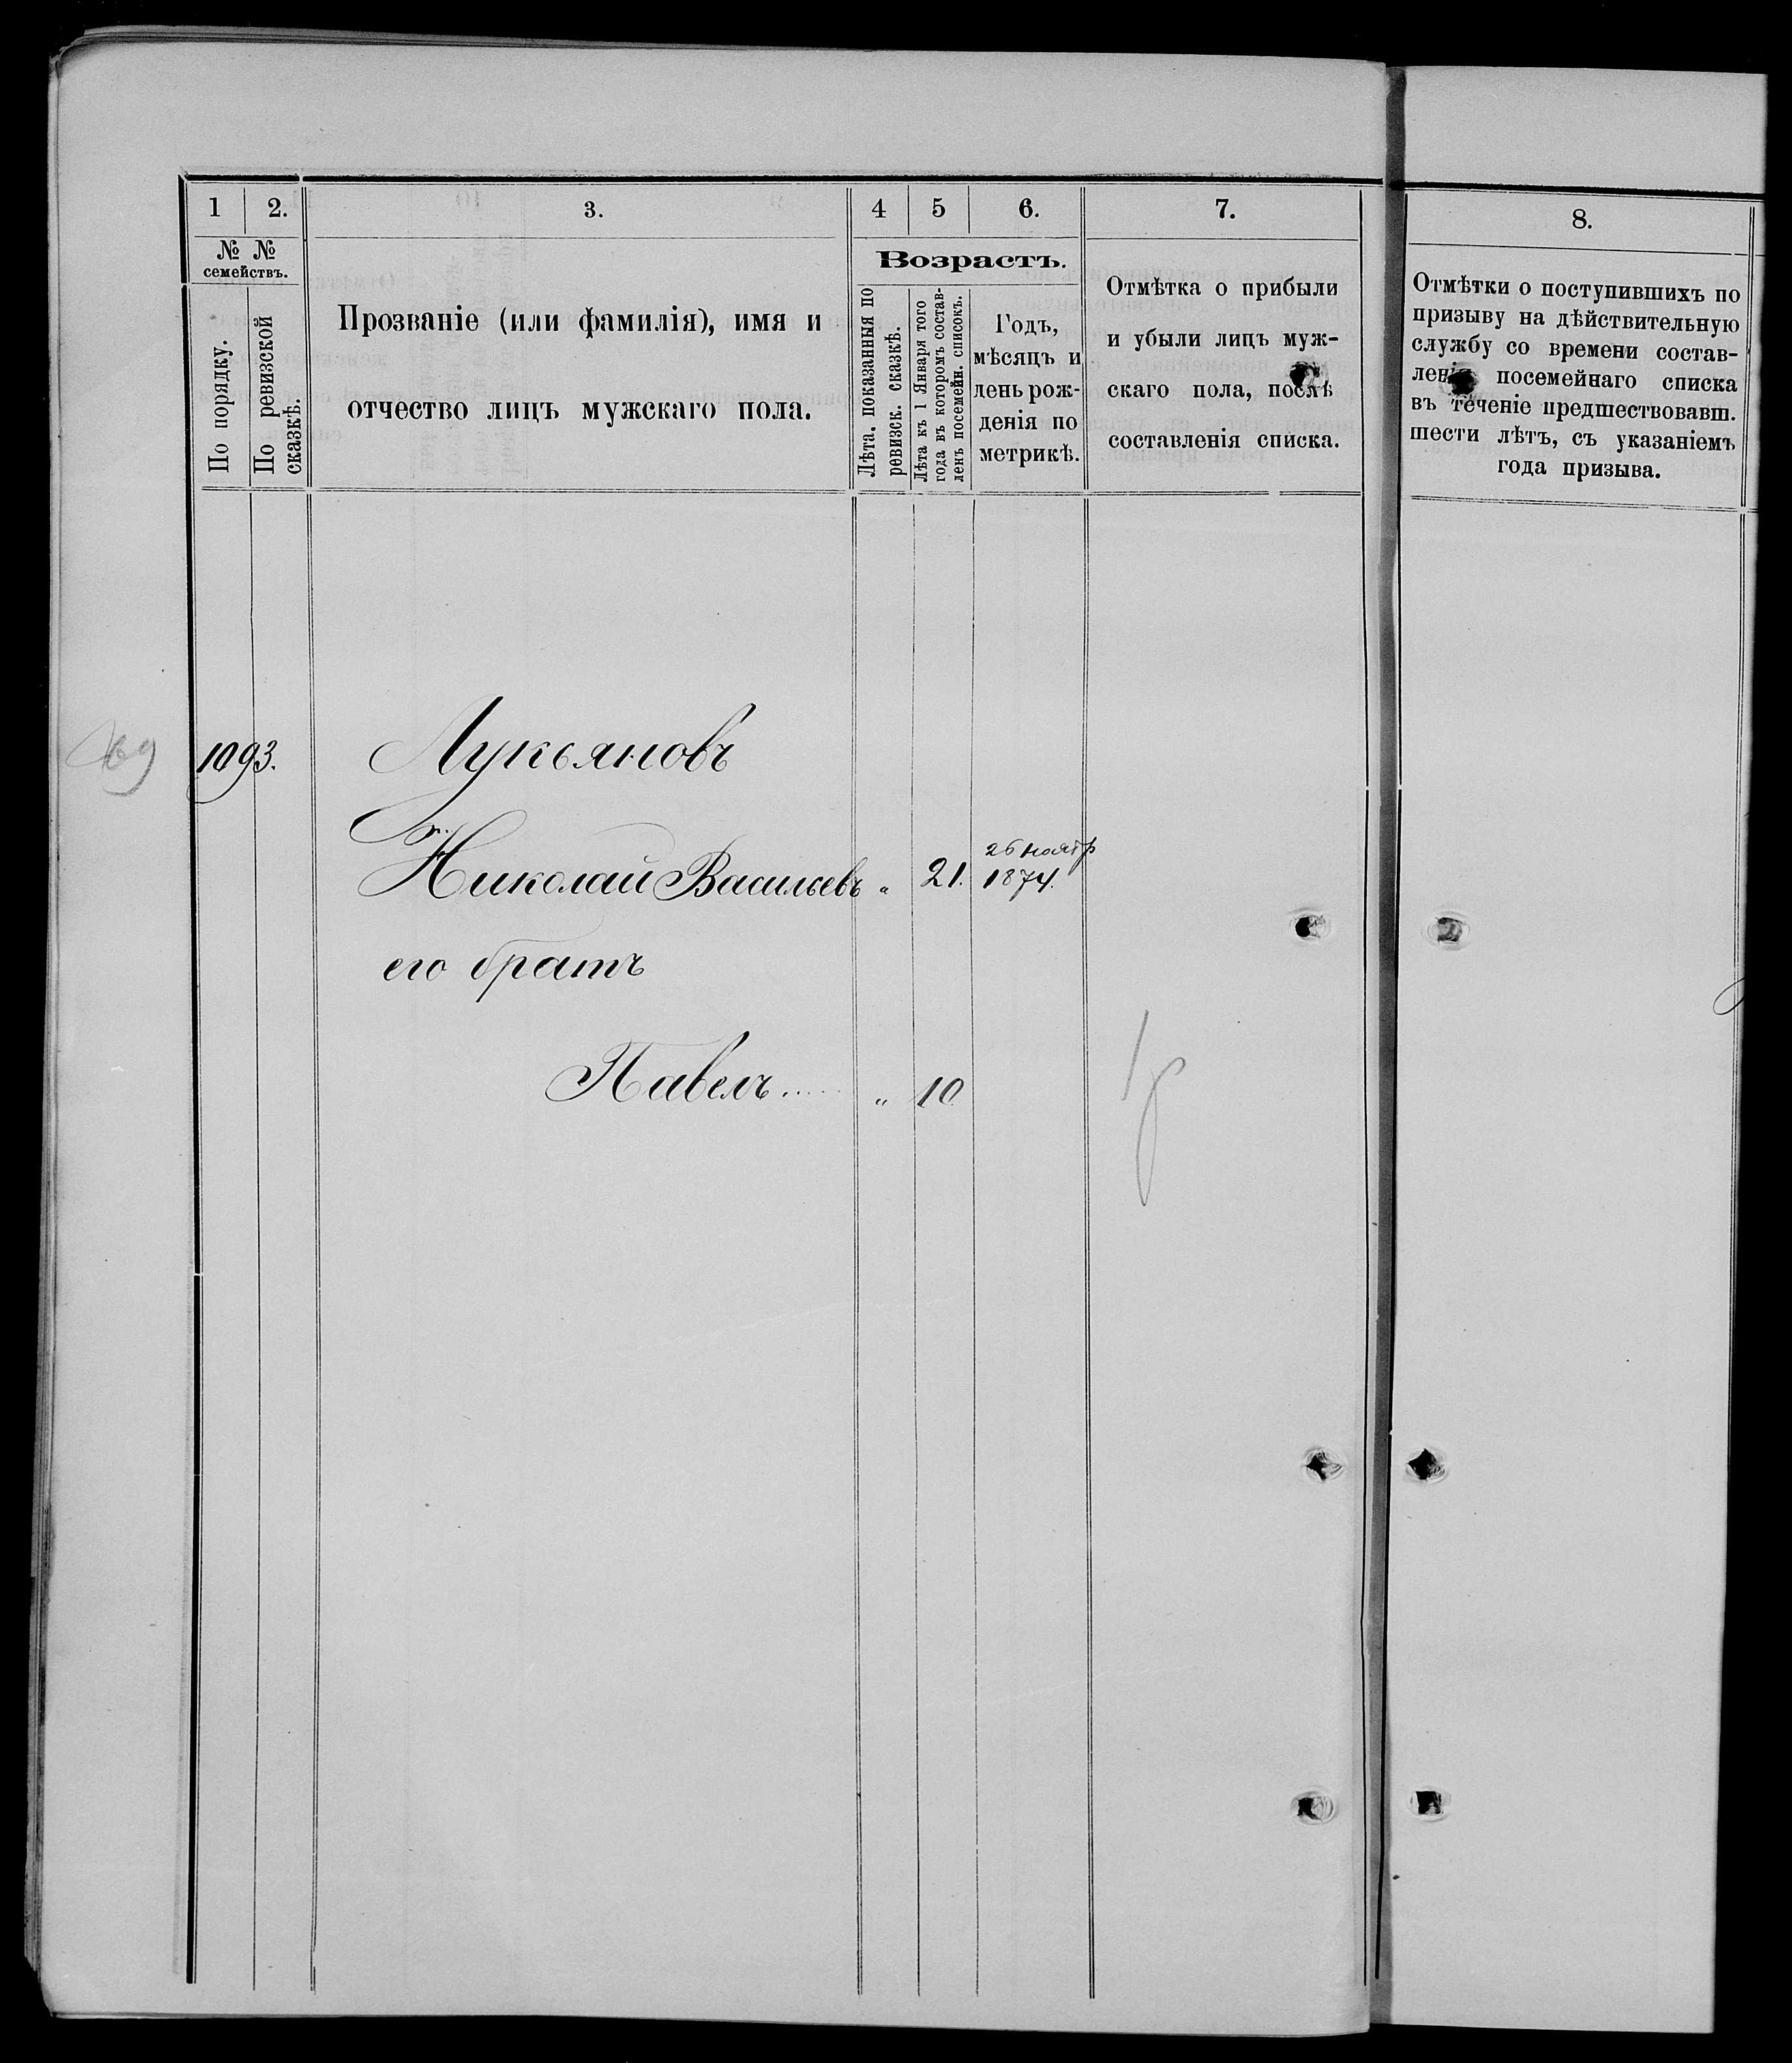 1 2. 3. 4 5 6. 7. 8.
№ №
семействъ.
По порядку.
По ревизской
сказкѣ.
Прозваніе (или фамилія), имя и
отчество лицъ мужскаго пола.
Возрастъ.
Лѣта, показанныя по
ревизск. сказкѣ.
Лѣта къ 1 Января того
года въ которомъ состав-
ленъ посемейн. списокъ.
Годъ,
мѣсяцъ и
день рож-
денія по
метрикѣ.
Отмѣтка о прибыли
и убыли лицъ муж-
скаго пола, послѣ
составленія списка.
Отмѣтки о поступившихъ по
призыву на дѣйствительную
службу со времени состав-
ленія посемейнаго списка
въ теченіе предшествовавш.
шести лѣтъ, съ указаніемъ
года призыва.
1093. Лукьяновъ
26 ноябр
Николай Васильевъ „ 21. 1874.
его братъ
Павелъ..... „ 10